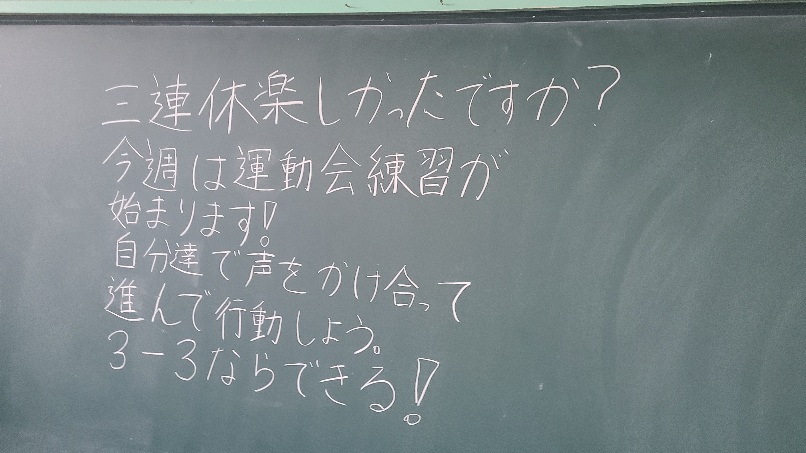 三連休楽しかったですか?
今週は運動会練習が
始まります!
自分達で声をかけ合って
進んで行動しよう。
3-3ならできる!